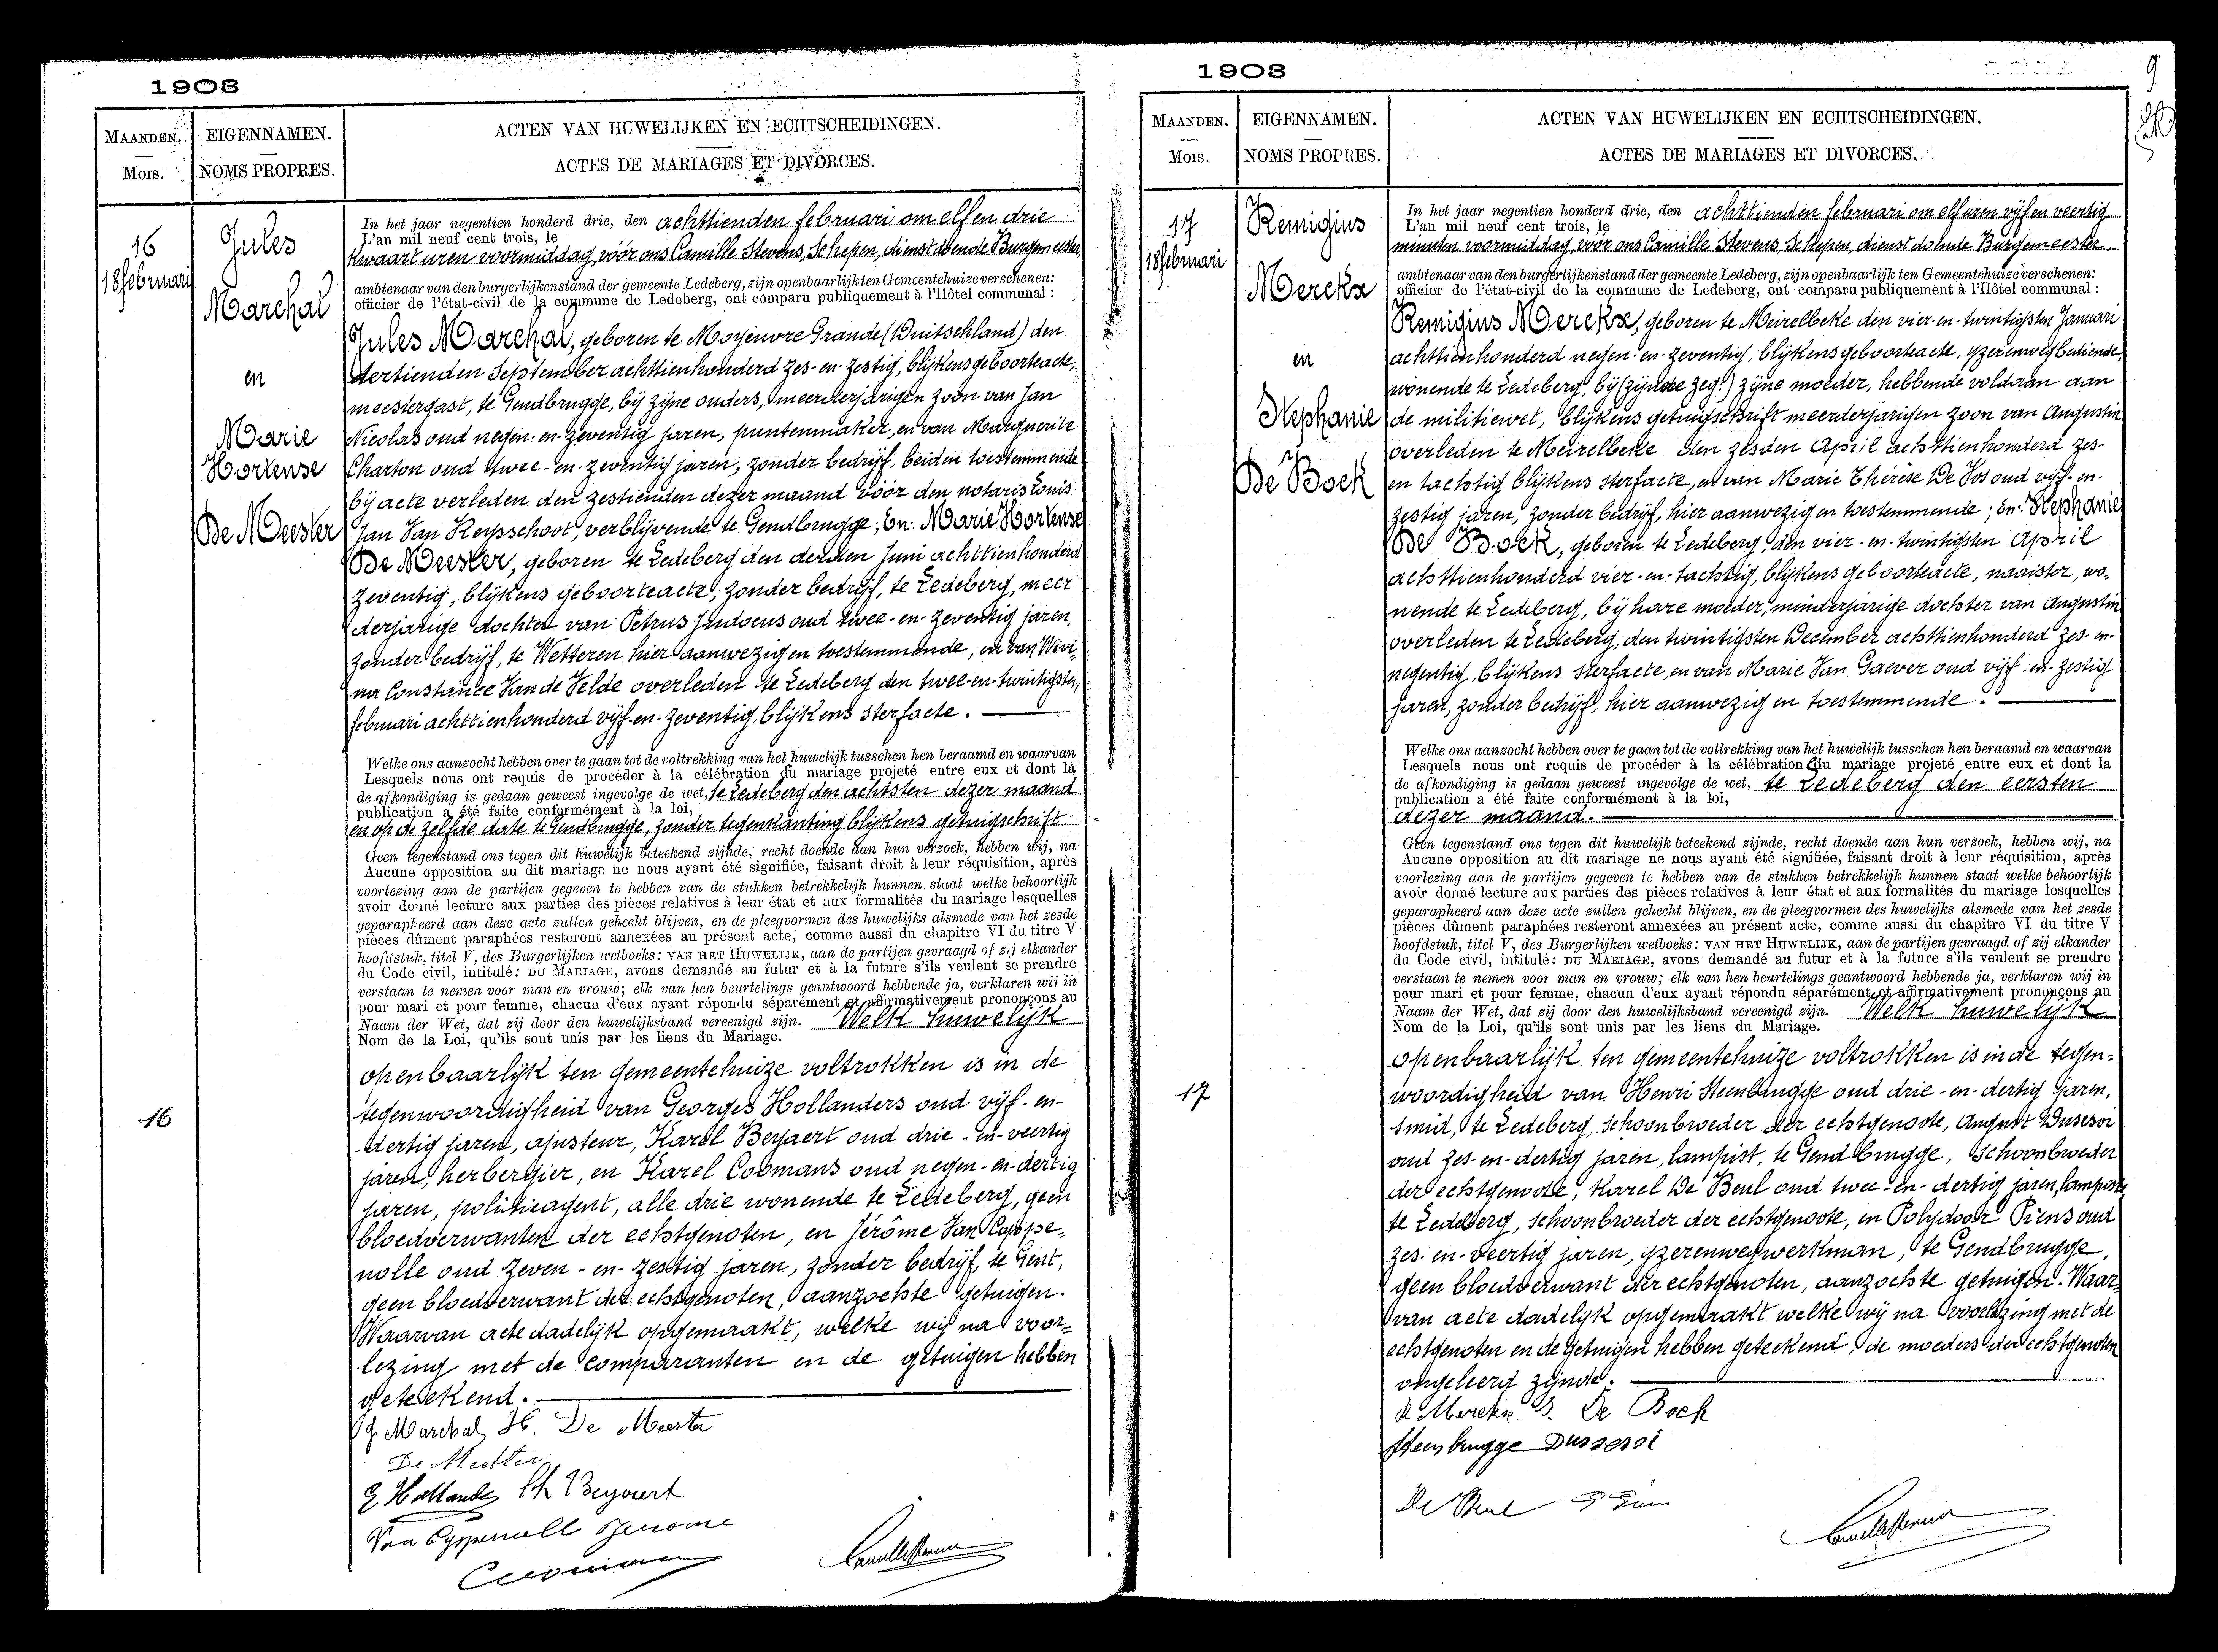 1903
MAANDEN.
Mois.
EIGENNAMEN.
NOMS PROPRES.
ACTEN VAN HUWELIJKEN EN ECHTSCHEIDINGEN.
ACTES DE MARIAGES ET DIVORCES.
16
18 februari
Jules
Marchal
en
Marie
Hortense
De Meester
16
In het jaar negentien honderd drie, den achttienden februari om elf en drie
L'an mil neuf cent trois, le
kwaart uren voormiddag, vóór ons Camille Stevens, Schepen, dienstdoende Burgemeester,
ambtenaar van den burgerlijkenstand der gemeente Ledeberg, zijn openbaarlijk ten Gemeentehuize verschenen:
officier de l'état-civil de la commune de Ledeberg, ont comparu publiquement à l'Hôtel communal :
Jules Marchal, geboren te Moyeuvre Grande (Duitschland) den
dertienden September achttienhonderd zes-en-zestig, blijkens geboorteacte,
meestergast, te Gendbrugge, bij zijne ouders, meerderjarigen zoon van Jan
Nicolas oud negen-en-zeventig jaren, puntenmaker, en van Marguerite
Charton oud twee-en-zeventig jaren, zonder bedrijf, beiden toestemmende
bij acte verleden den zestienden dezer maand vóór den notaris Louis
Jan Van Keysschoot, verblijvende te Gendbrugge; En: Marie Hortense
De Meester, geboren te Ledeberg den derden Juni achttienhonderd
zeventig, blijkens geboorteacte, zonder bedrijf, te Ledeberg, meer
derjarige dochter van Petrus Judocus oud twee-en-zeventig jaren,
zonder bedrijf, te Wetteren hier aanwezig en toestemmende, en van Wivi-
na Constance Van de Velde overleden te Ledeberg den twee-en-twintigsten
februari achttienhonderd vijf-en-zeventig, blijkens sterfacte.
Welke ons aanzocht hebben over te gaan tot de voltrekking van het huwelijk tusschen hen beraamd en waarvan
Lesquels nous ont requis de procéder à la célébration du mariage projeté entre eux et dont la
de afkondiging is gedaan geweest ingevolge de wet, te Ledeberg den achtsten dezer maand
publication a été faite conformément à la loi,
en op de zelfde date te Gendbrugge, zonder tegenkanting blijkens getuigschrift
Geen tegenstand ons tegen dit huwelijk beteekend zijnde, recht doende aan hun verzoek, hebben wij, na
Aucune opposition au dit mariage ne nous ayant été signifiée, faisant droit à leur réquisition, après
voorlezing aan de partijen gegeven te hebben van de stukken betrekkelijk hunnen staat welke behoorlijk
avoir donné lecture aux parties des pièces relatives à leur état et aux formalités du mariage lesquelles
geparapheerd aan deze acte zullen gehecht blijven, en de pleegvormen des huwelijks alsmede van het zesde
pièces dûment paraphées resteront annexées au présent acte, comme aussi du chapitre VI du titre V
hoofdstuk, titel V, des Burgerlijken wetboeks: VAN HET HUWELIJK, aan de partijen gevraagd of zij elkander
du Code civil, intitulé: DU MARIAGE, avons demandé au futur et à la future s'ils veulent se prendre
verstaan te nemen voor man en vrouw; elk van hen beurtelings geantwoord hebbende ja, verklaren wij in
pour mari et pour femme, chacun d'eux ayant répondu séparément et affirmativement prononçons au
Naam der Wet, dat zij door den huwelijksband vereenigd zijn. Welk huwelijk
Nom de la Loi, qu'ils sont unis par les liens du Mariage.
openbaarlijk ten gemeentehuize voltrokken is in de
tegenwoordigheid van Georges Hollanders oud vijf-en-
dertig jaren, ajusteur, Karel Beyaert oud drie-en-veertig
jaren, herbergier, en Karel Coomans oud negen-en-dertig
jaren, politieagent, alle drie wonende te Ledeberg, geen
bloedverwanten der echtgenoten, en Jérôme Van Coppe-
nolle oud zeven-en-zestig jaren, zonder bedrijf, te Gent,
geen bloedverwant der echtgenoten, aanzochte getuigen.
Waarvan acte dadelijk opgemaakt, welke wij na voor-
lezing met de comparanten en de getuigen hebben
geteekend.
J Marchal H. De Meester
De Meester
G Hollanders Ch Beyaert
Van Coppenolle Jerome
1903
9
MAANDEN.
Mois.
EIGENNAMEN.
NOMS PROPRES.
ACTEN VAN HUWELIJKEN EN ECHTSCHEIDINGEN.
ACTES DE MARIAGES ET DIVORCES.
17
18 februari
Remigius
Merckx
en
Stephanie
De Bock
17
In het jaar negentien honderd drie, den achttienden februari om elf uren vijf en veertig
L'an mil neuf cent trois, le
minuten voormiddag, vóór ons Camille Stevens, Schepen, dienstdoende Burgemeester
ambtenaar van den burgerlijkenstand der gemeente Ledeberg, zijn openbaarlijk ten Gemeentehuize verschenen:
officier de l'état-civil de la commune de Ledeberg, ont comparu publiquement à l'Hôtel communal :
Remigius Merckx, geboren te Meirelbeke den vier-en-twintigsten Januari
achttienhonderd negen-en-zeventig, blijkens geboorteacte, yzerenwegbediende,
wonende te Ledeberg, bij (zijnde zeg:) zijne moeder, hebbende voldaan aan
de militiewet, blijkens getuigschrift meerderjarigen zoon van Augustin
overleden te Meirelbeke den zesden April achttienhonderd zes-
en tachtig blijkens sterfacte, en van Marie Thérèse De Vos oud vijf-en-
zestig jaren, zonder bedrijf, hier aanwezig en toestemmende; En: Stephanie
De Bock, geboren te Ledeberg, den vier-en-twintigsten April
achttienhonderd vier-en-tachtig, blijkens geboorteacte, naaister, wo-
nende te Ledeberg, bij hare moeder, minderjarige dochter van Augustin
overleden te Ledeberg, den twintigsten December achttienhonderd zes-en-
negentig, blijkens sterfacte, en van Marie Van Gaever oud vijf-en-zestig
jaren, zonder bedrijf, hier aanwezig en toestemmende.
Welke ons aanzocht hebben over te gaan tot de voltrekking van het huwelijk tusschen hen beraamd en waarvan
Lesquels nous ont requis de procéder à la célébration du mariage projeté entre eux et dont la
de afkondiging is gedaan geweest ingevolge de wet, te Ledeberg den eersten
publication a été faite conformément à la loi,
dezer maand.
Geen tegenstand ons tegen dit huwelijk beteekend zijnde, recht doende aan hun verzoek, hebben wij, na
Aucune opposition au dit mariage ne nous ayant été signifiée, faisant droit à leur réquisition, après
voorlezing aan de partijen gegeven te hebben van de stukken betrekkelijk hunnen staat welke behoorlijk
avoir donné lecture aux parties des pièces relatives à leur état et aux formalités du mariage lesquelles
geparapheerd aan deze acte zullen gehecht blijven, en de pleegvormen des huwelijks alsmede van het zesde
pièces dûment paraphées resteront annexées au présent acte, comme aussi du chapitre VI du titre V
hoofdstuk, titel V, des Burgerlijken wetboeks: VAN HET HUWELIJK, aan de partijen gevraagd of zij elkander
du Code civil, intitulé: DU MARIAGE, avons demandé au futur et à la future s'ils veulent se prendre
verstaan te nemen voor man en vrouw; elk van hen beurtelings geantwoord hebbende ja, verklaren wij in
pour mari et pour femme, chacun d'eux ayant répondu séparément et affirmativement prononçons au
Naam der Wet, dat zij door den huwelijksband vereenigd zijn. Welk huwelijk
Nom de la Loi, qu'ils sont unis par les liens du Mariage.
openbaarlijk ten gemeentehuize voltrokken is in de tegen-
woordigheid van Henri Steenbrugge oud drie-en-dertig jaren,
smid, te Ledeberg, schoonbroeder der echtgenoote, August Dusesoi
oud zes-en-dertig jaren, lampist, te Gendbrugge, schoonbroeder
der echtgenoote, Karel De Beul oud twee-en-dertig jaren, lampist,
te Ledeberg, schoonbroeder der echtgenoote, en Polydoor Piens oud
zes-en-veertig jaren, yzerenwegwerkman, te Gendbrugge,
geen bloedverwant der echtgenoten, aanzochte getuigen. Waar-
van acte dadelijk opgemaakt welke wij na voorlezing met de
echtgenoten en de getuigen hebben geteekend, de moeders der echtgenoten
ongeleerd zijnde.
R Merckx S. De Bock
Steenbrugge Dussessoi
De Beul P Piens